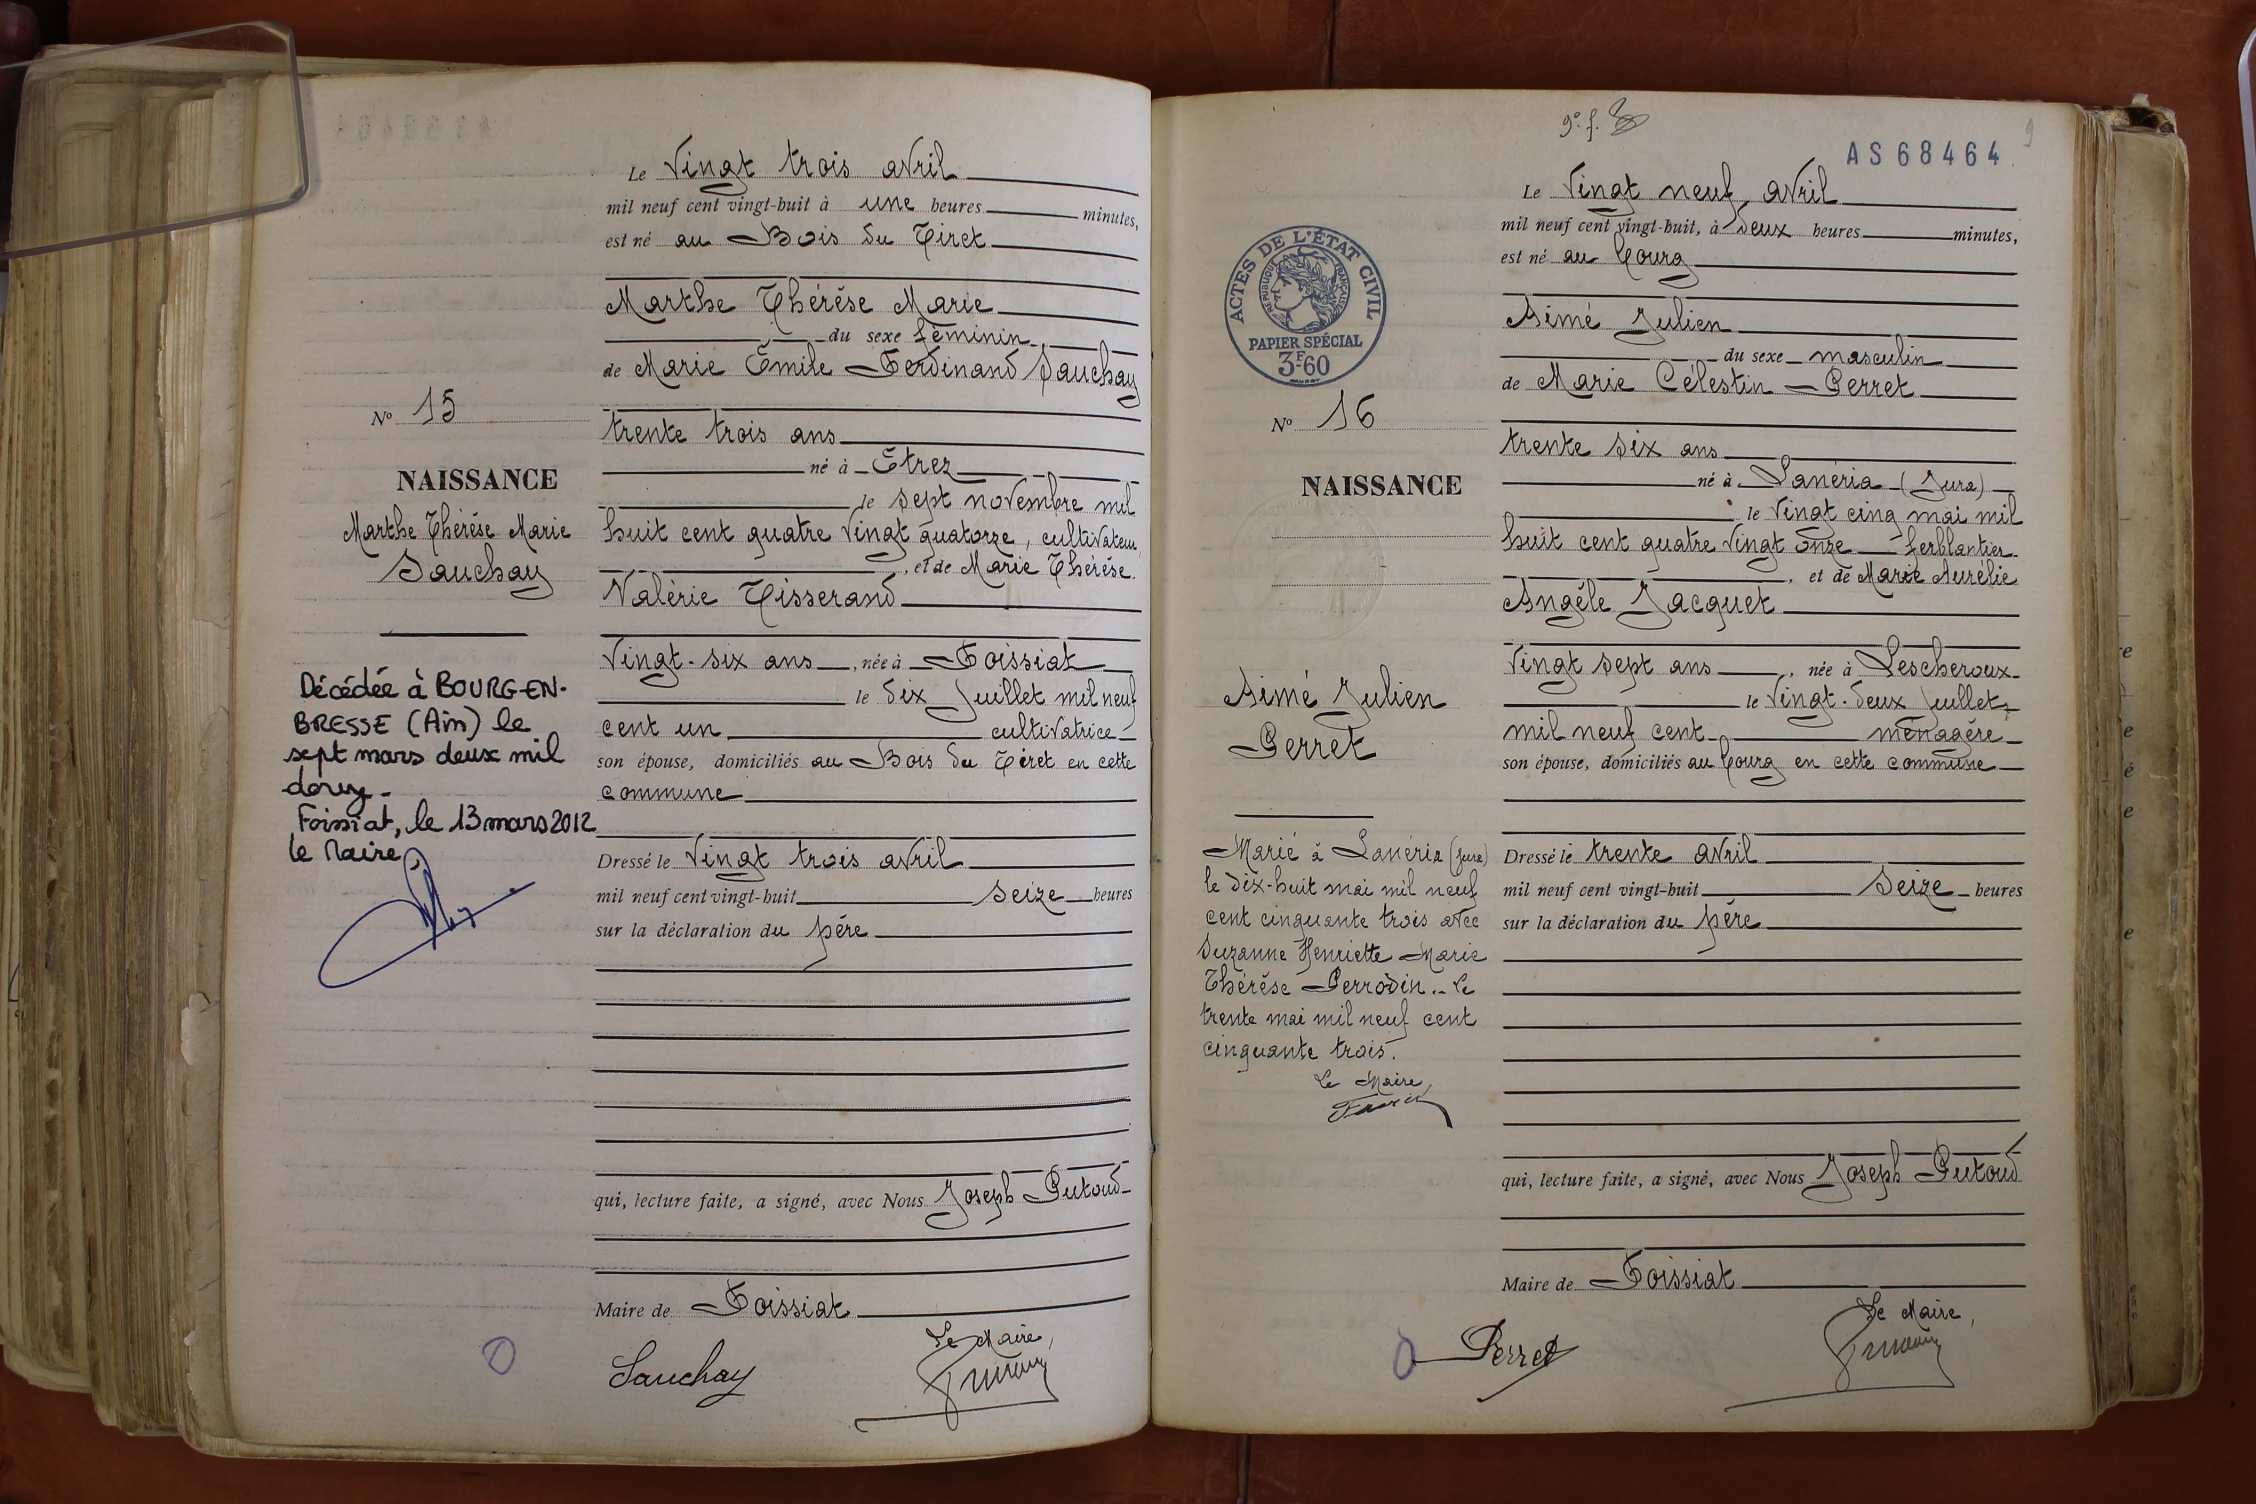 Le Vingt trois avril
mil neuf cent vingt-huit à une heures minutes,
est né au Bois du Tiret
Marthe Thérèse Marie
du sexe féminin
de Marie Émile Ferdinand Sauchay
trente trois ans
né à Étrez
le sept novembre mil
huit cent quatre vingt quatorze, cultivateur
, et de Marie Thérèse
Valérie Tisserand
Vingt-six ans, née à Foissiat
le dix Juillet mil neuf
cent un cultivatrice
son épouse, domiciliés au Bois du Tiret en cette
commune
Dressé le Vingt trois avril
mil neuf cent vingt-huit seize heures
sur la déclaration du père
qui, lecture faite, a signé, avec Nous Joseph Putoud
Maire de Foissiat
Le Maire,
Sauchay
No 15
NAISSANCE
Marthe Thérèse Marie
Sauchay
Décédée à BOURG-EN-
BRESSE (Ain) le
sept mars deux mil
douze.
Foissiat, le 13 mars 2012
le Maire,
9e. f.
AS68464
9
Le Vingt neuf avril
mil neuf cent vingt-huit, à deux heures minutes,
est né au bourg
Aimé Julien
du sexe masculin
de Marie Célestin Perret
trente six ans
né à Lanéria (Jura)
le vingt cinq mai mil
huit cent quatre vingt onze ferblantier
, et de Marie Aurélie
Angèle Jacquet
vingt sept ans, née à Lescheroux
le vingt-deux Juillet
mil neuf cent ménagère
son épouse, domiciliés au bourg en cette commune
Dressé le trente avril
mil neuf cent vingt-huit Seize heures
sur la déclaration du père
qui, lecture faite, a signé, avec Nous Joseph Putoud
Maire de Foissiat
Le Maire,
Perret
ACTES DE L'ÉTAT CIVIL
RÉPUBLIQUE FRANÇAISE
PAPIER SPÉCIAL
3F60
No 16
NAISSANCE
Aimé Julien
Perret
Marié à Lanéria (Jura)
le dix-huit mai mil neuf
cent cinquante trois avec
Suzanne Henriette Marie
Thérèse Perrodin.. Le
trente mai mil neuf cent
cinquante trois.
Le Maire